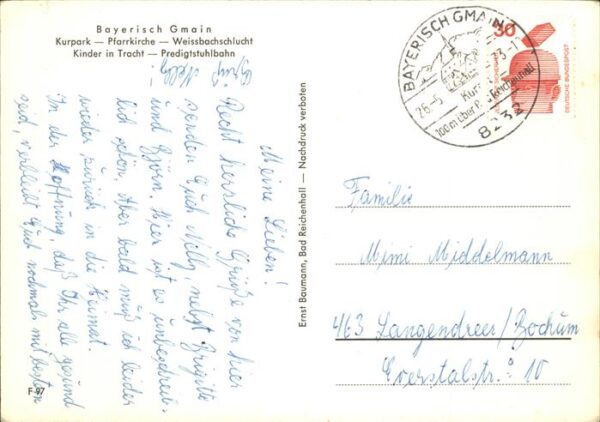 Bayerisch Gmain
Kurpark — Pfarrkirche — Weissbachschlucht
Kinder in Tracht — Predigtstuhlbahn
Meine Lieben!
Recht herzliche Grüße von hier
senden Euch Nelly, nebst Brigitte
und Björn. Hier ist es unbeschreib-
lich schön. Aber bald muß ich leider
wieder zurück in die Heimat.
In der Hoffnung, daß Ihr alle gesund
seid, verbleibt Euch nochmals mit besten
Nelly
Ernst Baumann, Bad Reichenhall — Nachdruck verboten
F 97
BAYERISCH GMAIN
26.-5
100m über Bad Reichenhall
8232
30
DEUTSCHE BUNDESPOST
Familie
Mimi Middelmann
463 Langendreer/Bochum
10